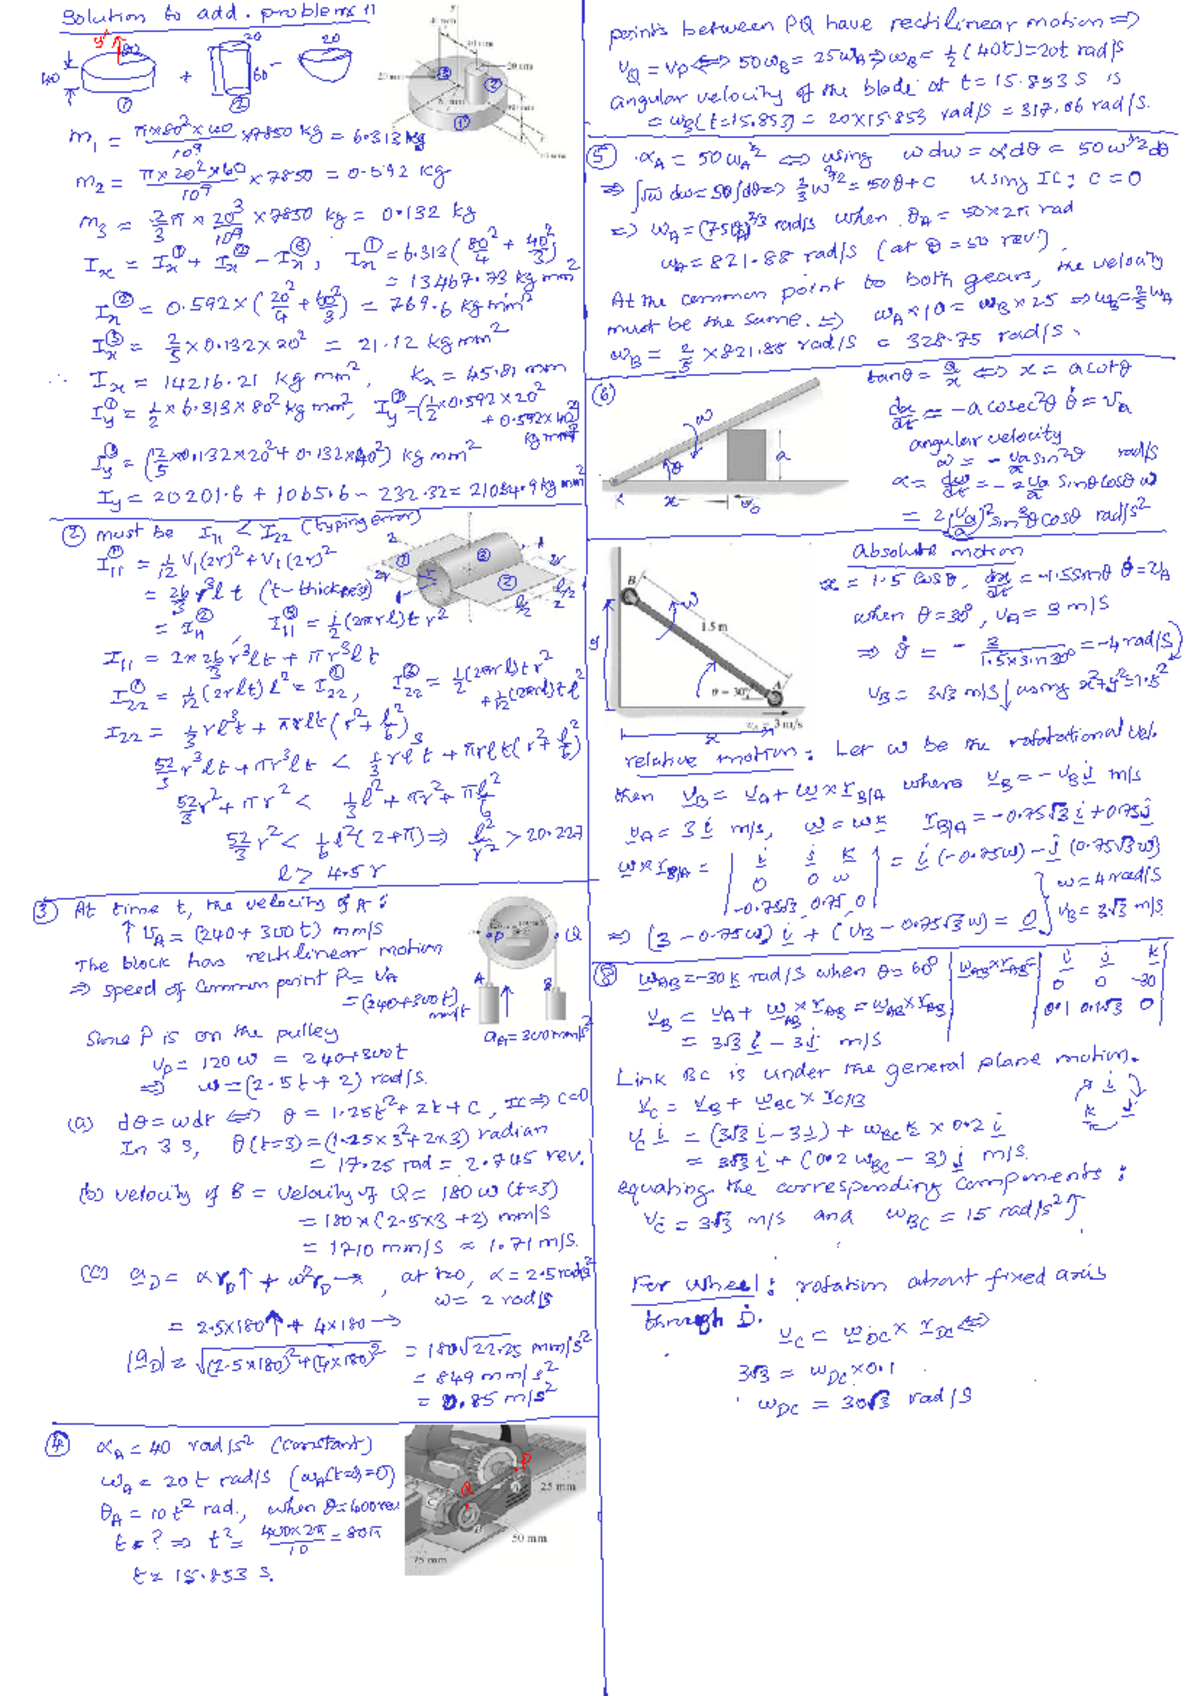 Solution to add. problems 11
m₁ = π×80²×40/10⁹ ×7850 kg = 6.313 kg
m₂ = π×20²×60/10⁹ ×7850 = 0.592 kg
m₃ = 2/3 π × 20³/10⁹ ×7850 kg = 0.132 kg
Iₓ = Iₓ① + Iₓ② − Iₓ③ ; Iₓ① = 6.313(80²/4 + 40²/3)
= 13467.73 kg mm²
Iₓ② = 0.592×(20²/4 + 60²/3) = 769.6 kg mm²
Iₓ③ = 2/5 × 0.132×20² = 21.12 kg mm²
∴ Iₓ = 14216.21 kg mm², kₓ = 45.81 mm
I_y① = 1/2 × 6.313×80² kg mm², I_y② = (1/2×0.592×20²
+ 0.592×40²)
kg mm²
I_y③ = (2/5×0.132×20² + 0.132×40²) kg mm²
I_y = 20201.6 + 1065.6 − 232.32 = 21034.9 kg mm²
② must be I₁₁ < I₂₂ (typing error)
I₁₁① = 1/12 V₁(2r)² + V₁(2r)²
= 26/3 r³lt (t – thickness)
= I₁₁②, I₁₁③ = 1/2 (2πrl)t r²
I₁₁ = 2× 26/3 r³lt + πr³lt
I₂₂① = 1/12 (2rlt) l² = I₂₂②, I₂₂③ = 1/2(2πrl)t r²
+ 1/12(2πrl)t l²
I₂₂ = 1/3 rl³t + πrlt (r² + l²/6)
52/3 r³lt + πr³lt < 1/3 rl³t + πrlt(r² + l²/6)
52/3 r² + πr² < 1/3 l² + πr² + π l²/6
52/3 r² < 1/6 l²(2+π) ⇒ l²/r² > 20.227
l > 4.5 r
③ At time t, the velocity of A :
↑ V_A = (240 + 300t) mm/s
The block has rectilinear motion
⇒ speed of common point P = V_A
= (240+300t)
mm/s
Since P is on the pulley
V_P = 120 ω = 240+300t
⇒ ω = (2.5t + 2) rad/s.
a_A = 300 mm/s²
(a) dθ = ωdt ⇔ θ = 1.25t² + 2t + C, IC ⇒ C=0
In 3 s, θ(t=3) = (1.25×3² + 2×3) radian
= 17.25 rad = 2.745 rev.
(b) velocity of B = velocity of Q = 180 ω (t=3)
= 180×(2.5×3 +2) mm/s
= 1710 mm/s ≈ 1.71 m/s.
(c) a_D = α r_D ↑ + ω² r_D →, at t=0, α = 2.5 rad/s²
ω = 2 rad/s
= 2.5×180 ↑ + 4×180 →
|a_D| = √(2.5×180)²+(4×180)² = 180√22.25 mm/s²
= 849 mm/s²
= 0.85 m/s²
④ α_A = 40 rad/s² (constant)
ω_A = 20t rad/s (ω_A(t=0)=0)
θ_A = 10t² rad., when θ = 400 rev
t = ? ⇒ t² = 400×2π/10 = 80π
t = 15.853 s.
25 mm
50 mm
75 mm
points between PQ have rectilinear motion ⇒
V_Q = V_P ⇔ 50ω_B = 25ω_A ⇒ ω_B = 1/2(40t) = 20t rad/s
angular velocity of the blade at t = 15.853 s is
= ω_B(t=15.853) = 20×15.853 rad/s = 317.06 rad/s.
⑤ α_A = 50 ω_A^½ ⇔ using ωdω = αdθ = 50ω^½dθ
⇒ ∫√ω dω = 50∫dθ ⇒ 2/3 ω^3/2 = 50θ + C using IC ; C = 0
⇒ ω_A = (75θ_A)^2/3 rad/s when θ_A = 50×2π rad
ω_A = 821.88 rad/s (at θ = 50 rev.)
At the common point to both gears, the velocity
must be the same. ⇒ ω_A×10 = ω_B×25 ⇒ ω_B = 2/5 ω_A
ω_B = 2/5 × 821.88 rad/s = 328.75 rad/s.
⑥ tanθ = a/x ⇔ x = a cotθ
dx/dt = −a cosec²θ θ̇ = V₀
angular velocity
ω = −V₀/a sin²θ rad/s
α = dω/dt = −2V₀/a sinθcosθ ω
= 2(V₀/a)² sin³θ cosθ rad/s²
absolute motion
x = 1.5 cosθ, dx/dt = −1.5 sinθ θ̇ = V_A
when θ = 30°, V_A = 3 m/s
⇒ θ̇ = − 3/1.5×sin30° = −4 rad/s
V_B = 3√3 m/s ↓ using x²+y²=1.5²
B
1.5 m
θ = 30°
A
v_A = 3 m/s
relative motion : Let ω be the rotational vel.
then V_B = V_A + ω × r_B/A where V_B = −V_B j m/s
V_A = 3 i m/s, ω = ωk r_B/A = −0.75√3 i + 0.75 j
ω×r_B/A = | i j k | = i(−0.75ω) − j(0.75√3 ω)
0 0 ω
−0.75√3 0.75 0
ω = 4 rad/s
V_B = 3√3 m/s.
⇒ (3 − 0.75ω) i + (V_B − 0.75√3 ω) = 0
⑧ ω_AB = −30 k rad/s when θ = 60° ω_AB×r_AB = | i j k |
0 0 −30
0.1 0.1√3 0
V_B = V_A + ω_AB × r_AB = ω_AB × r_AB
= 3√3 i − 3 j m/s
Link BC is under the general plane motion.
V_C = V_B + ω_BC × r_C/B
V_C i = (3√3 i − 3 j) + ω_BC k × 0.2 i
= 3√3 i + (0.2 ω_BC − 3) j m/s.
equating the corresponding components :
V_C = 3√3 m/s and ω_BC = 15 rad/s²
For wheel : rotation about fixed axis
through D.
V_C = ω_DC × r_DC ⇔
3√3 = ω_DC × 0.1
ω_DC = 30√3 rad/s